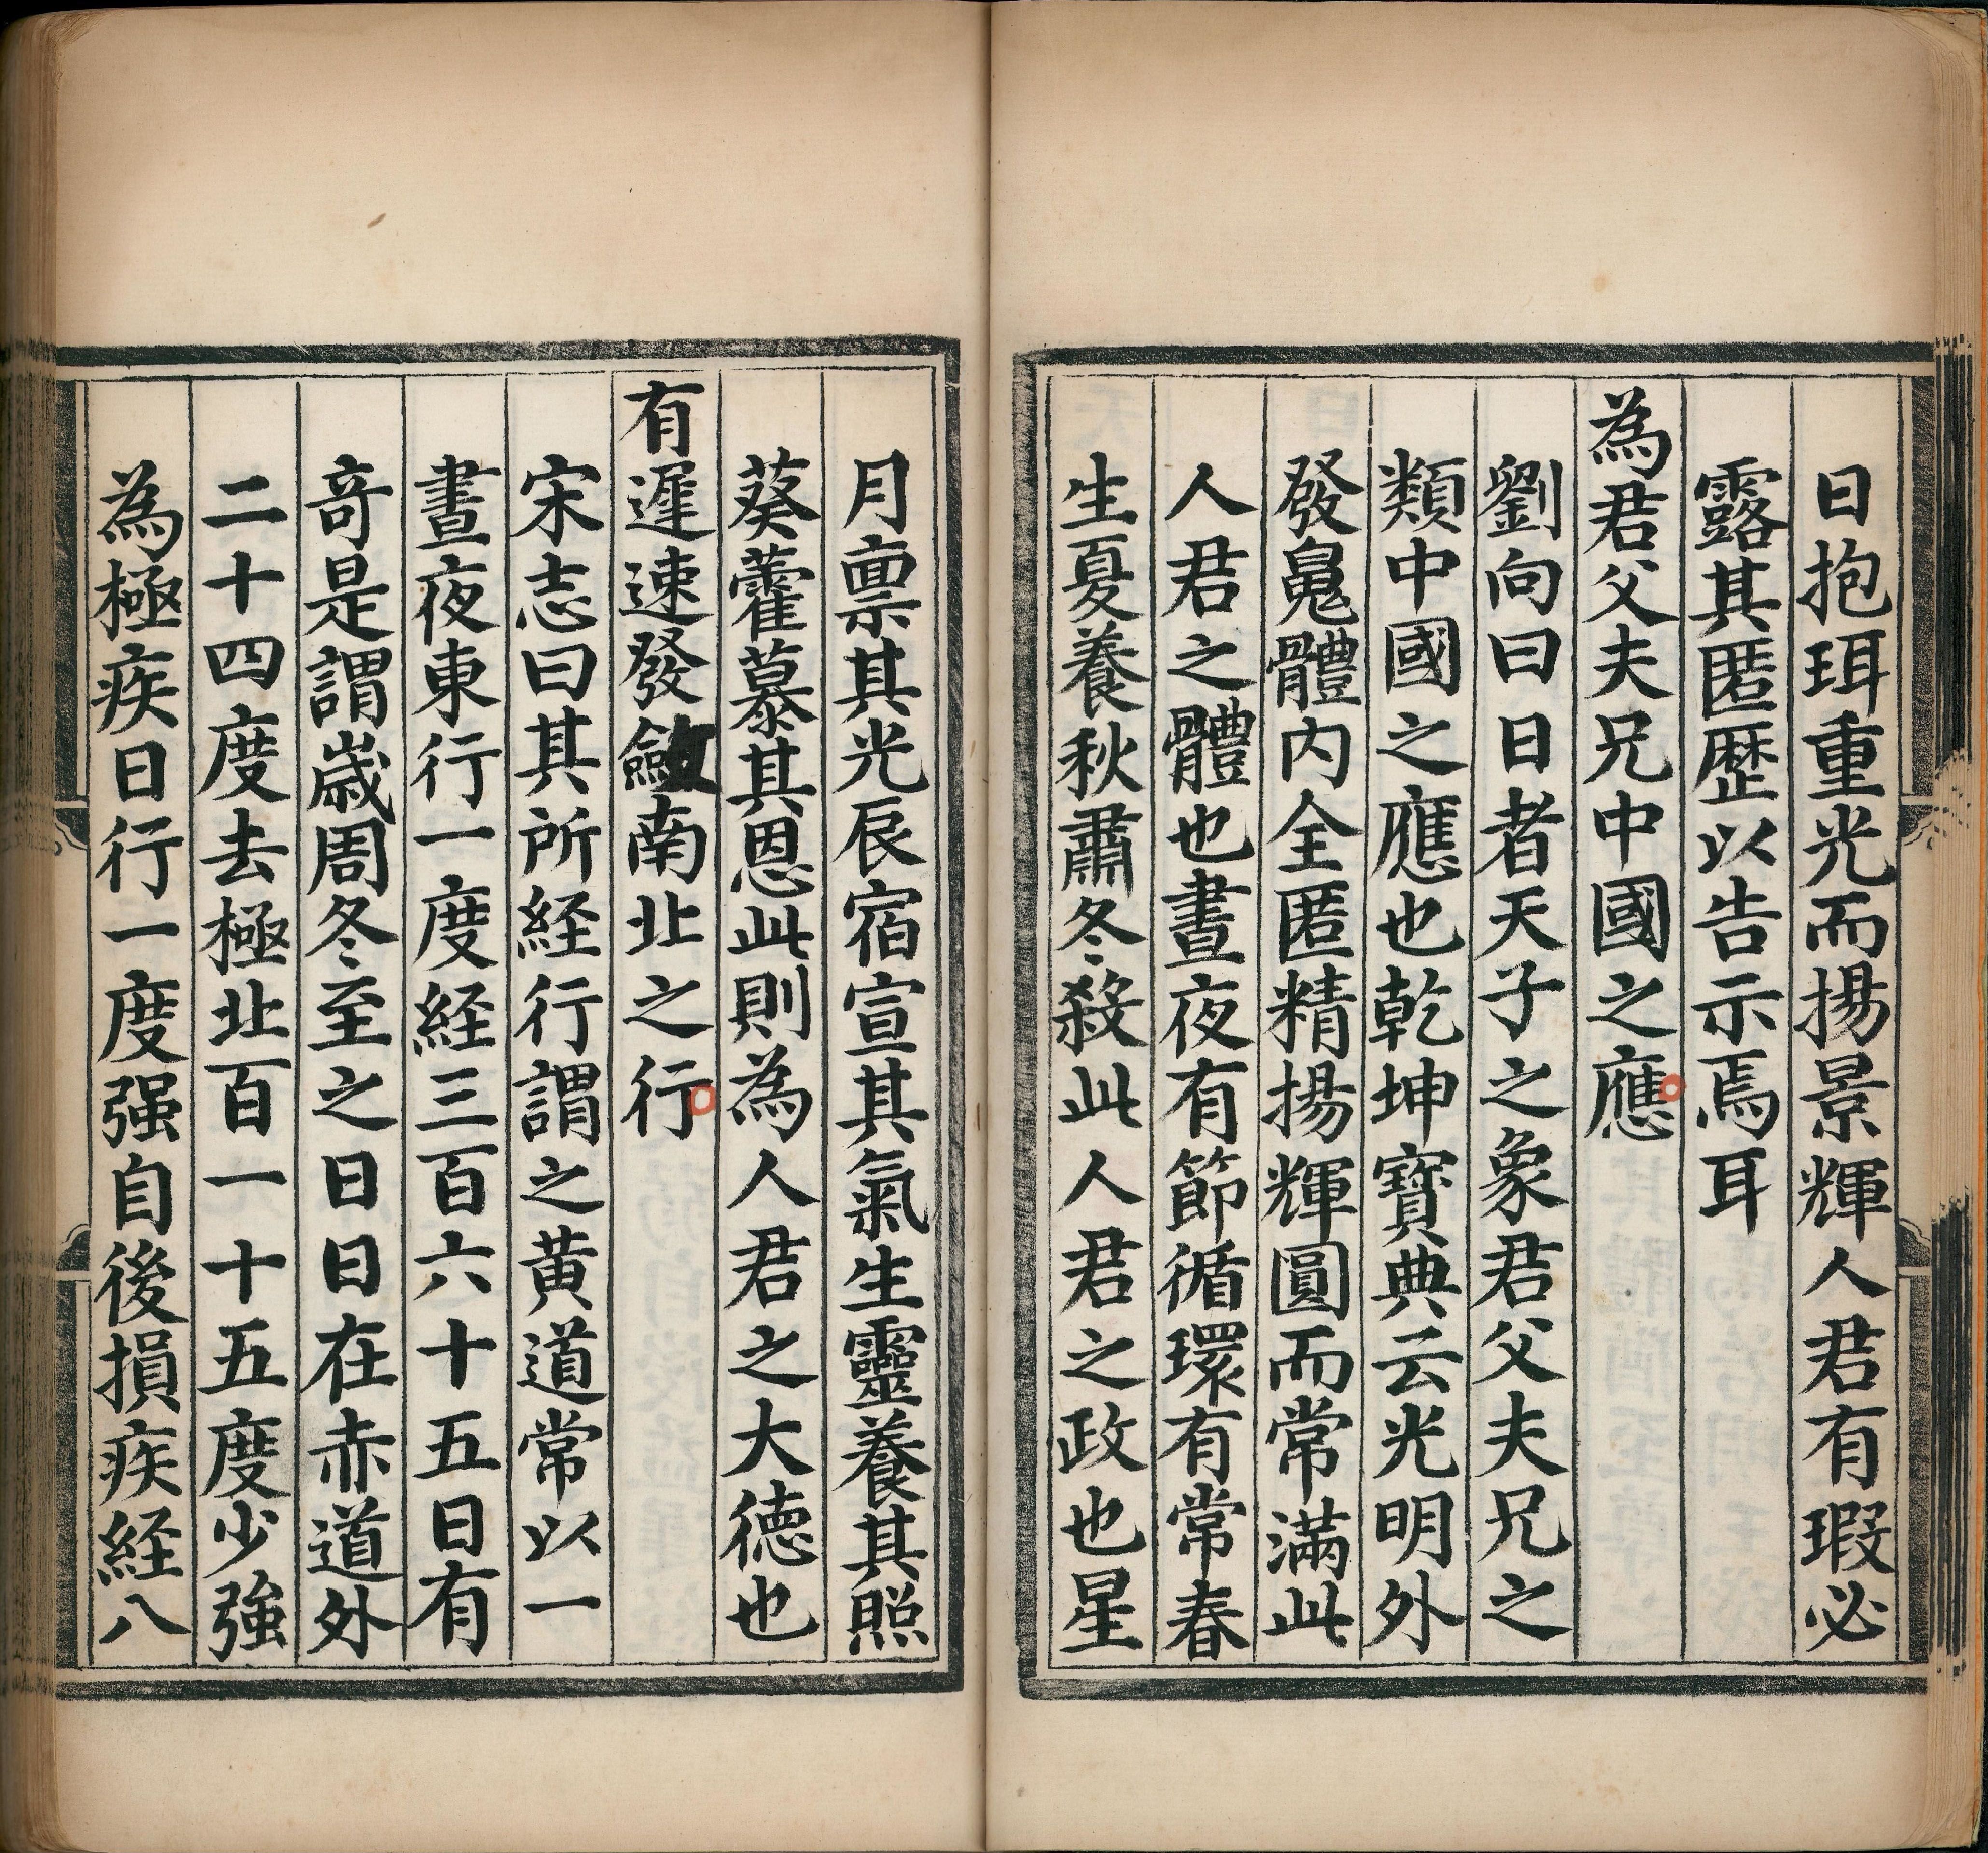 日抱珥重光而揚景輝人君有瑕必
露其匿歷以告示焉耳
為君父夫兄中國之應
劉向曰日者天子之象君父夫兄之
類中國之應也乾坤寶典云光明外
發鬼體内全匿精揚輝圓而常滿此
人君之體也晝夜有節循環有常春
生夏養秋肅冬殺此人君之政也星
月禀其光辰宿宣其氣生靈養其照
葵藿慕其恩此則為人君之大德也
有遲速發斂南北之行
宋志曰其所経行謂之黄道常以一
晝夜東行一度経三百六十五日有
竒是謂歲周冬至之日日在赤道外
二十四度去極北百一十五度少強
為極疾日行一度强自後損疾経八